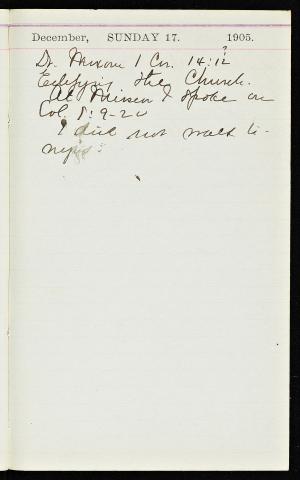 December, SUNDAY 17. 1905.
Dr. 1 Cor. 14:12
Edifying the Church.
At Mission I spoke on
Col. 1:9-20
I did not walk to-
night